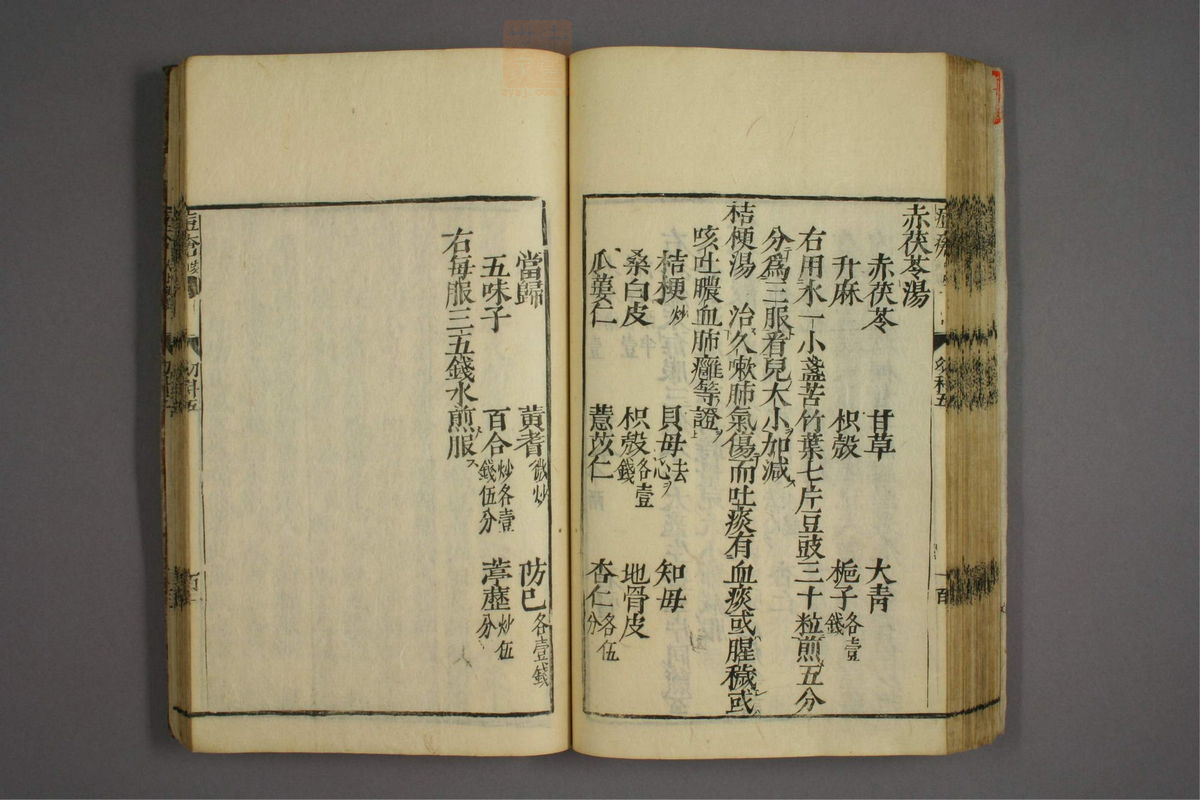 赤茯苓湯
赤茯苓 甘草 大青
升麻 枳殼 梔子各壹錢
右用水一小盞苦竹葉七片豆豉三十粒煎五分
分爲三服看兒大小加減
桔梗湯 治久嗽肺氣傷而吐痰有血痰或腥穢或
咳吐膿血肺癰等證
桔梗炒 貝母去心 知母
桑白皮 枳殼各壹錢 地骨皮
瓜蔞仁 薏苡仁 杏仁各伍分
當歸 黃耆微炒 防己各壹錢
五味子 百合炒各壹錢伍分 葶藶炒伍分
右每服三五錢水煎服